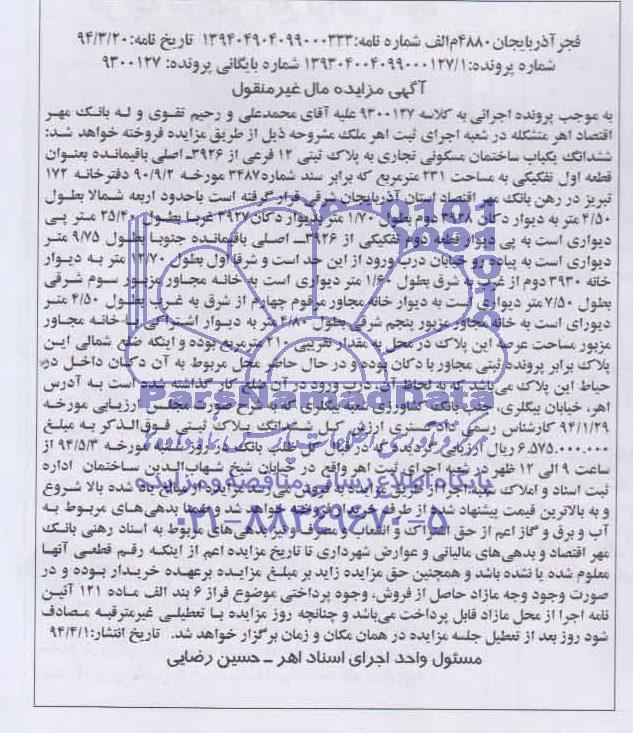 فجر آذربایجان ۴۸۸۰م‌الف شماره نامه: ۱۳۹۴۰۴۹۰۴۰۹۹۰۰۰۳۳۳ تاریخ نامه: ۹۴/۳/۲۰
شماره پرونده: ۱۳۹۳۰۴۰۰۴۰۹۹۰۰۰۱۲۷/۱ شماره بایگانی پرونده: ۹۳۰۰۱۲۷
آگهی مزایده مال غیرمنقول
به موجب پرونده اجرائی به کلاسه ۹۳۰۰۱۲۷ علیه آقای محمدعلی و رحیم تقوی و له بانک مهر
اقتصاد اهر متشکله در شعبه اجرای ثبت اهر ملک مشروحه ذیل از طریق مزایده فروخته خواهد شد:
ششدانگ یکباب ساختمان مسکونی تجاری به پلاک ثبتی ۱۲ فرعی از ۳۹۲۶ـ اصلی باقیمانده بعنوان
قطعه اول تفکیکی به مساحت ۲۳۱ مترمربع که برابر سند شماره ۳۴۸۷ مورخه ۹۰/۹/۲ دفترخانه ۱۷۲
تبریز در رهن بانک مهر اقتصاد استان آذربایجان شرقی قرار گرفته است باحدود اربعه شمالا بطول
۴/۵۰ متر به دیوار دکان ۳۹۲۸ دوم بطول ۱/۷۰ متر بدیوار دکان ۳۹۲۷ غربا بطول ۲۵/۴۰ متر پی
دیواری است به پی دیوار قطعه دوم تفکیکی از ۳۹۲۶ـ اصلی باقیمانده جنوبا بطول ۹/۷۵ متر
دیواری است به پیاده رو خیابان درب ورود از این حد است و شرقا اول بطول ۱۲/۷۰ متر به دیوار
خانه ۳۹۳۰ دوم از غرب به شرق بطول ۱/۶۰ متر دیواری است به خانه مجاور مزبور سوم شرقی
بطول ۷/۵۰ متر دیواری است به دیوار خانه مجاور مرقوم چهارم از شرق به غرب بطول ۴/۵۰ متر
دیورای است به خانه مجاور مزبور پنجم شرقی بطول ۴/۸۰ متر به دیوار اشتراکی با خانه مجاور
مزبور مساحت عرصه این پلاک در محل به مقدار تقریبی ۲۱۰ مترمربع بوده و اینکه ضلع شمالی این
پلاک برابر پرونده ثبتی مجاور با دکان بوده و در حال حاضر محل مربوط به آن دکان داخل در
حیاط این پلاک می باشد که به لحاظ آن، درب ورود در آن ضلع کار گذاشته شده است به آدرس
اهر، خیابان بیگلری، جنب بانک کشاورزی شعبه بیگلری که به شرح صورت مجلس ارزیابی مورخه
۹۴/۱/۲۹ کارشناس رسمی دادگستری ارزش کل ششدانگ پلاک ثبتی فوق‌الذکر به مبلغ
۶.۵۷۵.۰۰۰.۰۰۰ ریال ارزیابی گردیده که در قبال کل طلب بانک در روز شنبه مورخه ۹۴/۵/۳ از
ساعت ۹ الی ۱۲ ظهر در شعبه اجرای ثبت اهر واقع در خیابان شیخ شهاب‌الدین ساختمان اداره
ثبت اسناد و املاک شعبه اجرا از طریق مزایده به فروش می‌رسد مزایده از مبالغ یاد شده بالا شروع
و به بالاترین قیمت پیشنهاد شده از طرف خریداران فروخته خواهد شد و ضمنا بدهی‌های مربوط به
آب و برق و گاز اعم از حق اشتراک و انشعاب و مصرف و نیز بدهی های مربوط به اسناد رهنی بانک
مهر اقتصاد و بدهی های مالیاتی و عوارض شهرداری تا تاریخ مزایده اعم از اینکه رقم قطعی آنها
معلوم شده یا نشده باشد و همچنین حق مزایده زاید بر مبلغ مزایده برعهده خریدار بوده و در
صورت وجود وجه مازاد حاصل از فروش، وجوه پرداختی موضوع فراز ۶ بند الف ماده ۱۲۱ آئین
نامه اجرا از محل مازاد قابل پرداخت می‌باشد و چنانچه روز مزایده با تعطیلی غیرمترقبه مصادف
شود روز بعد از تعطیل جلسه مزایده در همان مکان و زمان برگزار خواهد شد. تاریخ انتشار: ۹۴/۴/۱
مسئول واحد اجرای اسناد اهر ـ حسین رضایی
ParsNamadData
پایگاه اطلاع رسانی مناقصه و مزایده
۰۲۱-۸۸۳۴۹۶۷۰-۵